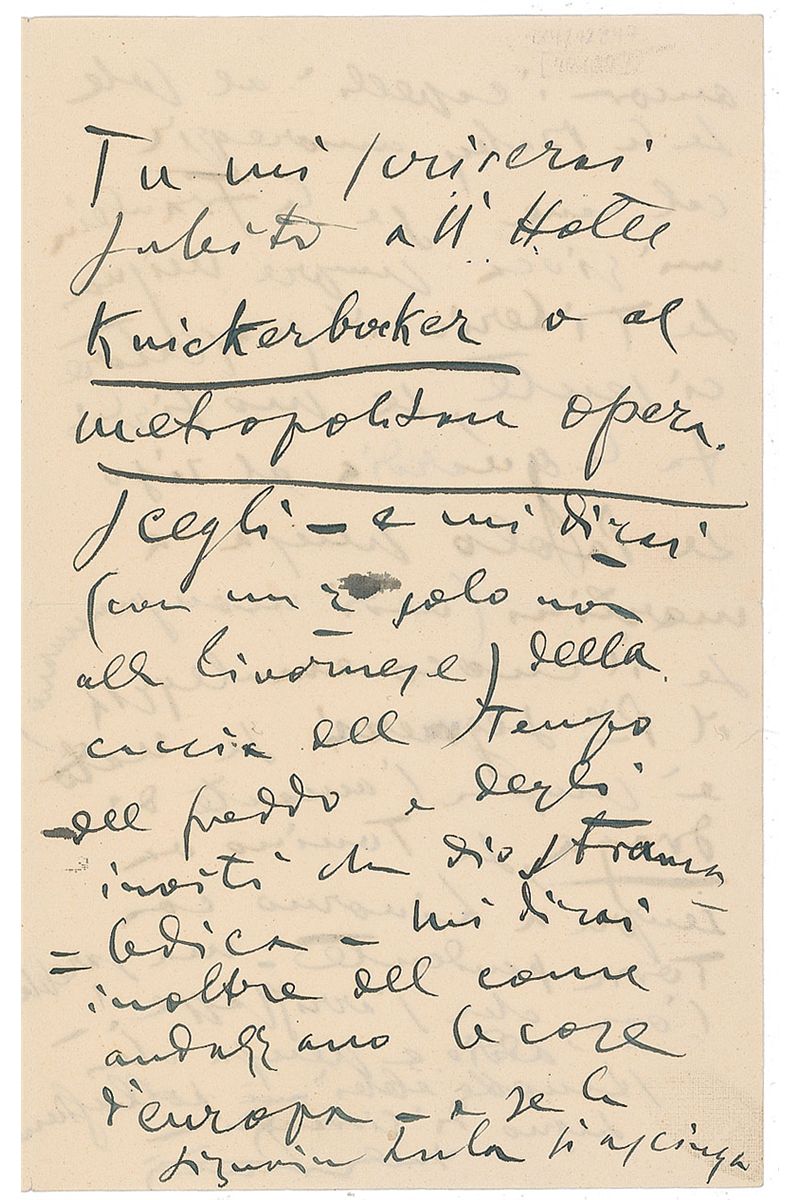 Tu mi scriverai
subito all' Hotel
Knickerbocker o al
metropolitan opera.
scegli - e mi dirai
(con un r solo non
alla livornese) della
caccia del tempo
del freddo e degli
inviti che dio strama
= ledica - mi dirai
inoltre del come
andazzano le cose
d'europa - e se la
signorina Lula si